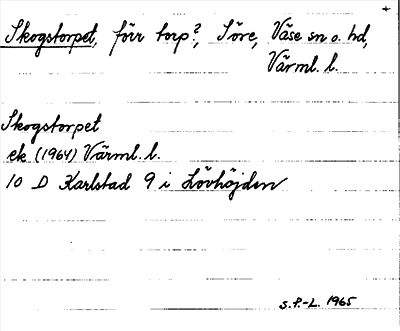 +
Skogstorpet, förr torp?, Söre, Väse sn o. hd,
Värml. l.
Skogstorpet
ek. (1964) Värml. l.
10 D Karlstad 9 i Lövhöjden
S.P.-L. 1965